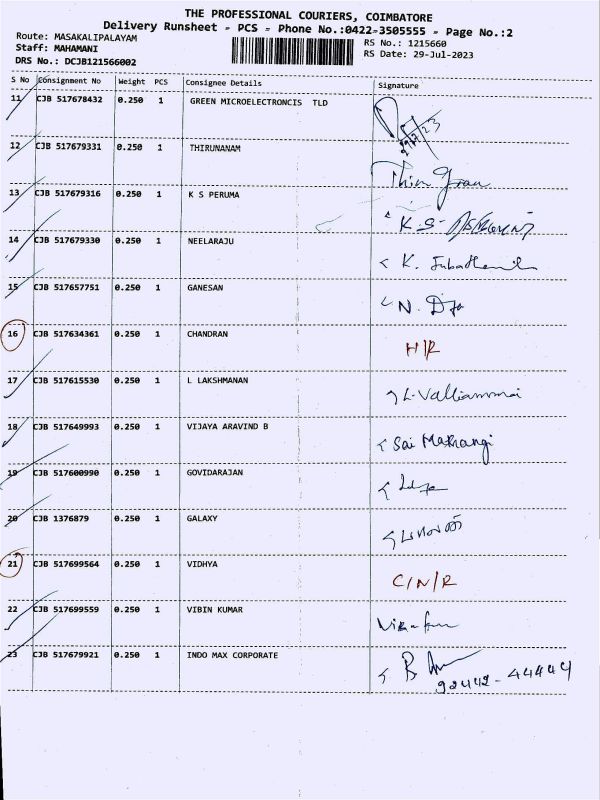 THE PROFESSIONAL COURIERS, COIMBATORE
Delivery Runsheet - PCS - Phone No.:0422-3505555 - Page No.:2
Route: MASAKALIPALAYAM
RS No.: 1215660
Staff: MAHAMANI
RS Date: 29-Jul-2023
DRS No.: DCJB121566002
S No Consignment No Weight PCS Consignee Details Signature
11 CJB 517678432 0.250 1 GREEN MICROELECTRONCIS TLD
12 CJB 517679331 0.250 1 THIRUNANAM
13 CJB 517679316 0.250 1 K S PERUMA K.S.
14 CJB 517679330 0.250 1 NEELARAJU K.
15 CJB 517657751 0.250 1 GANESAN N.
16 CJB 517634361 0.250 1 CHANDRAN H/R
17 CJB 517615530 0.250 1 L LAKSHMANAN L.Valliammai
18 CJB 517649993 0.250 1 VIJAYA ARAVIND B Sai Mathangi
19 CJB 517600990 0.250 1 GOVIDARAJAN
20 CJB 1376879 0.250 1 GALAXY
21 CJB 517699564 0.250 1 VIDHYA C/N/R
22 CJB 517699559 0.250 1 VIBIN KUMAR
23 CJB 517679921 0.250 1 INDO MAX CORPORATE
92442-44444